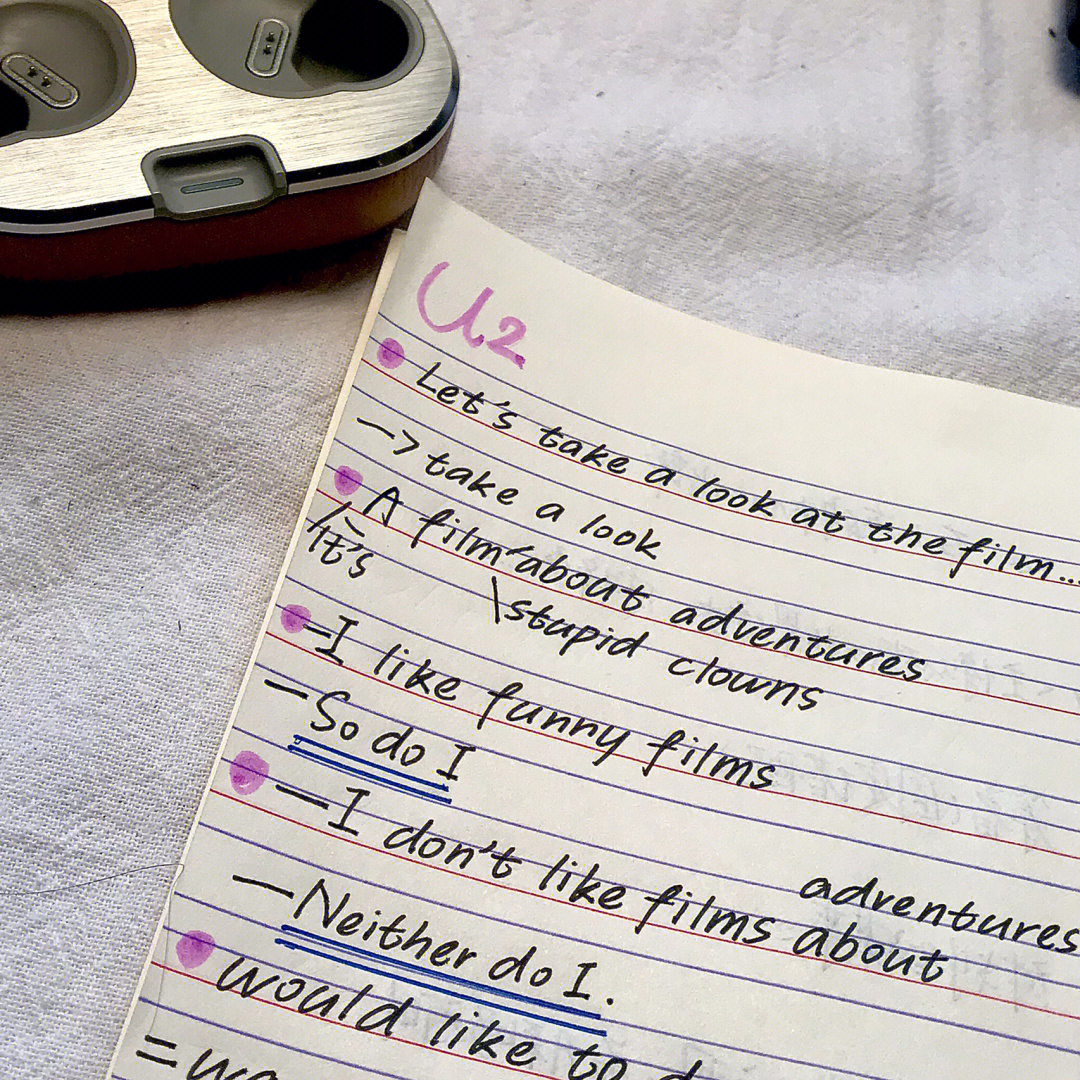 U2
Let's take a look at the film...
-> take a look
A film about adventures
It's
\stupid clowns
-I like funny films
-So do I
-I don't like films about adventures
-Neither do I.
would like to
=